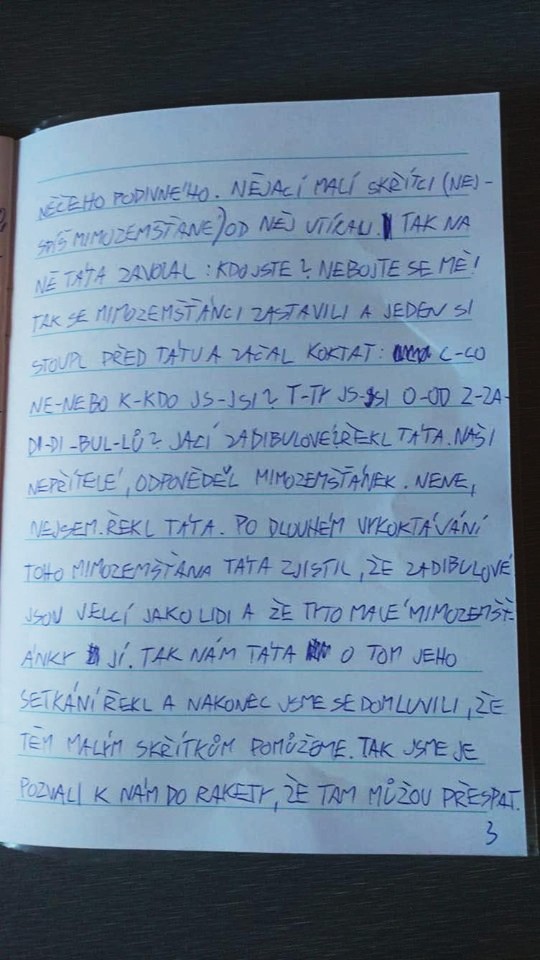 NĚČEHO PODIVNÉHO. NĚJACÍ MALÍ SKŘÍTCI (NEJ-
SPÍŠ MIMOZEMŠŤANÉ) OD NĚJ UTÍKALI. TAK NA
NĚ TÁTA ZAVOLAL: KDO JSTE? NEBOJTE SE MĚ!
TAK SE MIMOZEMŠŤÁNCI ZASTAVILI A JEDEN SI
STOUPL PŘED TÁTU A ZAČAL KOKTAT: C-CO
NE-NEBO K-KDO JS-JSI? T-TY JS-JSI O-OD Z-ZA-
DI-DI-BUL-LŮ? JACÍ ZADIBULOVÉ? ŘEKL TÁTA. NAŠI
NEPŘÍTELÉ, ODPOVĚDĚL MIMOZEMŠŤÁNEK. NENE,
NEJSEM. ŘEKL TÁTA. PO DLOUHÉM VYKOKTÁVÁNÍ
TOHO MIMOZEMŠŤANA TÁTA ZJISTIL, ŽE ZADIBULOVÉ
JSOU VELCÍ JAKO LIDI A ŽE TYTO MALÉ MIMOZEMŠŤ-
ÁNKY JÍ. TAK NÁM TÁTA O TOM JEHO
SETKÁNÍ ŘEKL A NAKONEC JSME SE DOMLUVILI, ŽE
TĚM MALÝM SKŘÍTKŮM POMŮŽEME. TAK JSME JE
POZVALI K NÁM DO RAKETY, ŽE TAM MŮŽOU PŘESPAT.
3